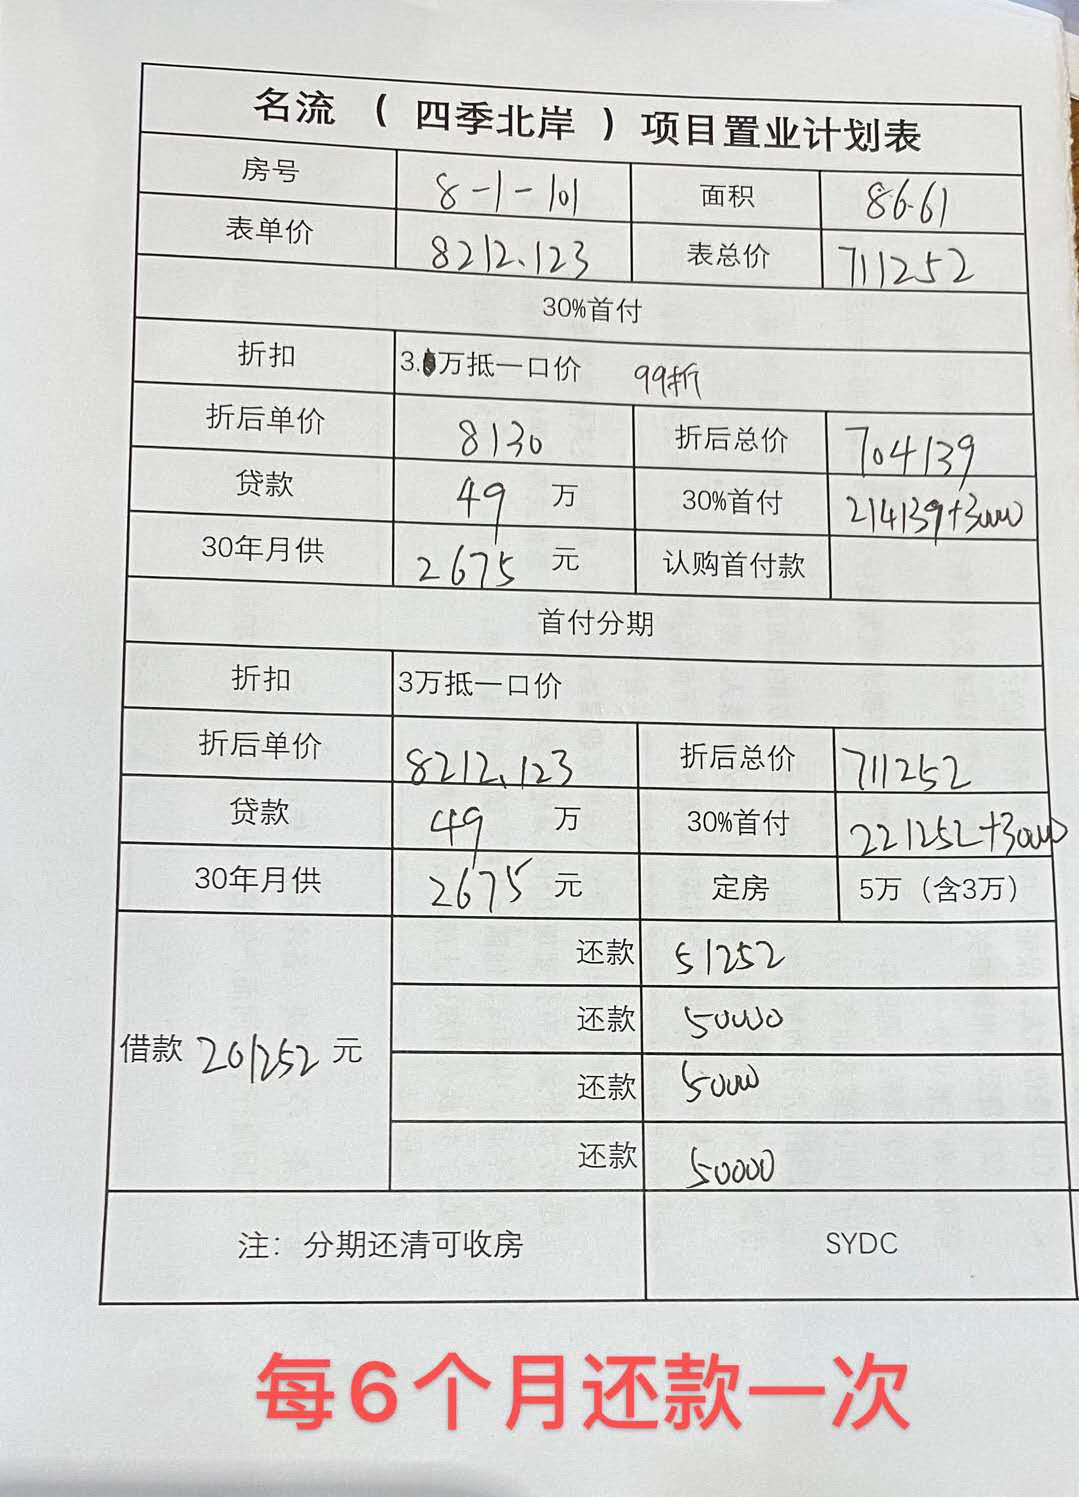 名流 （ 四季北岸 ） 项目置业计划表
房号 8-1-101 面积 86.61
表单价 8212.123 表总价 711252
30%首付
折扣 3.万抵一口价 99折
折后单价 8130 折后总价 704139
贷款 49 万 30%首付 214139+30000
30年月供 2675 元 认购首付款
首付分期
折扣 3万抵一口价
折后单价 8212.123 折后总价 711252
贷款 49 万 30%首付 221252+30000
30年月供 2675 元 定房 5万（含3万）
还款 51252
还款 50000
借款 201252 元
还款 50000
还款 50000
注：分期还清可收房 SYDC
每6个月还款一次